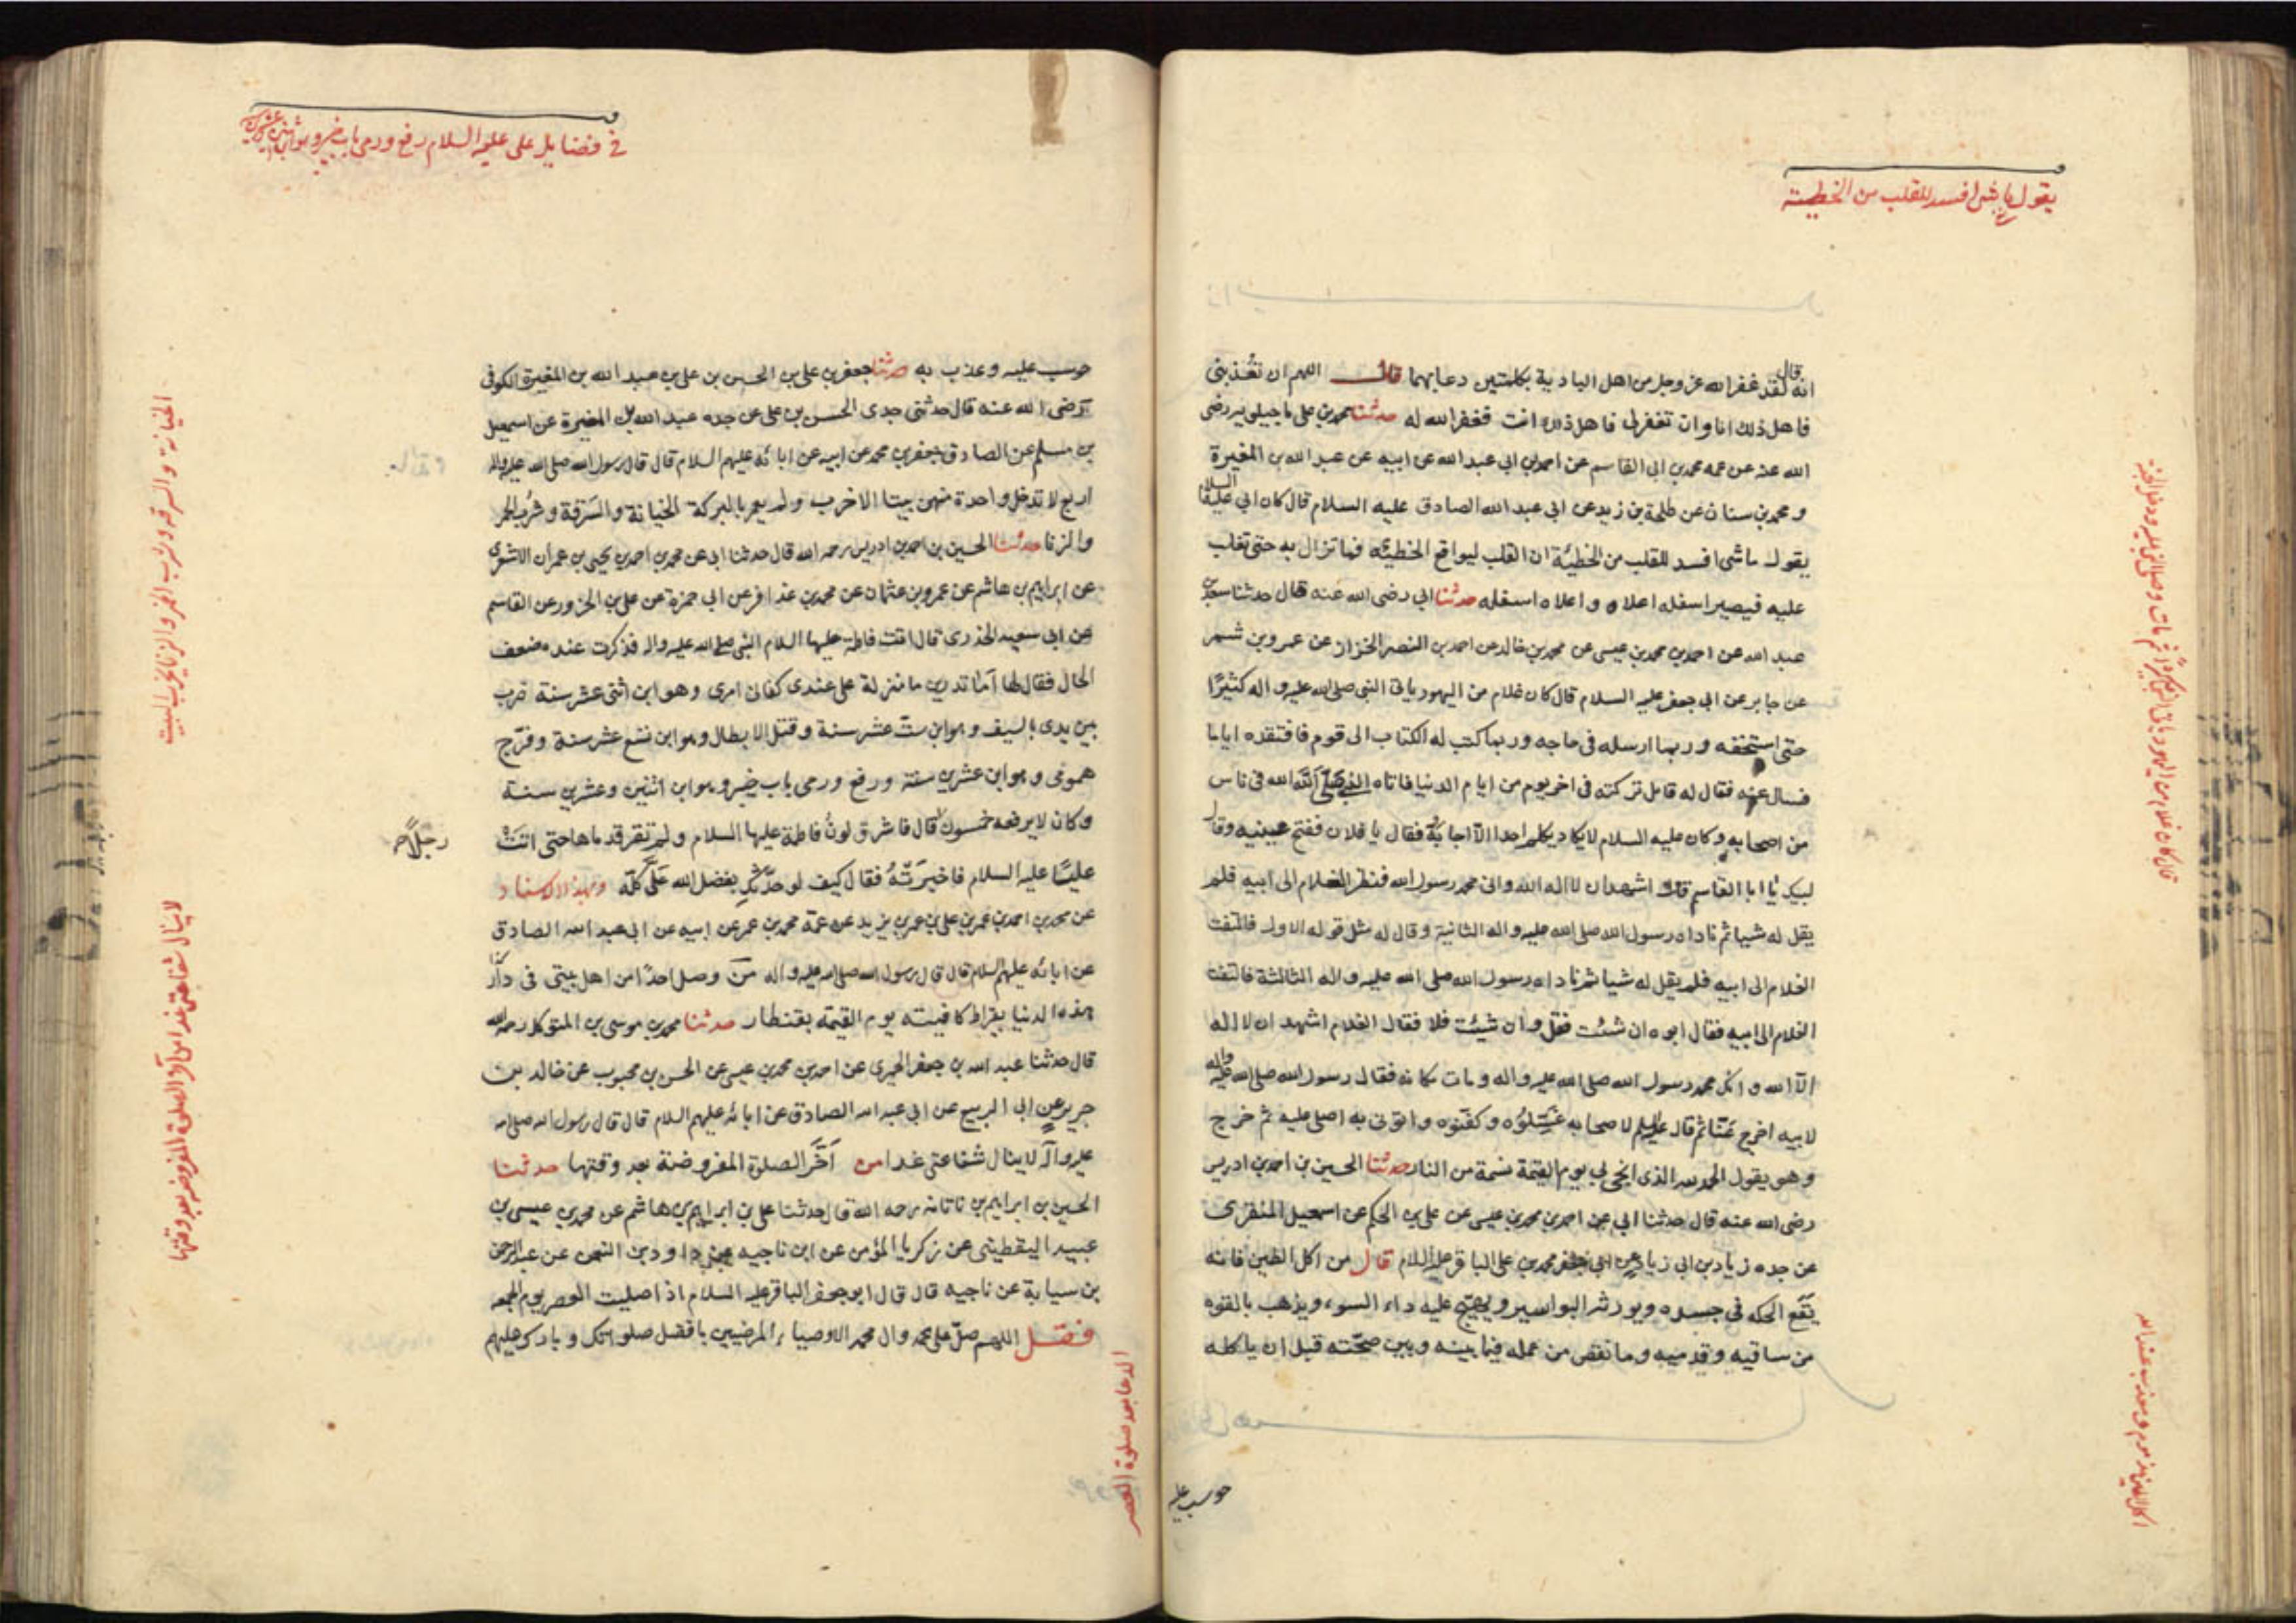 يقول ما شئ افسد للقلب من الخطيئة
انه قال لقد غفر الله عز وجل من اهل البادية بكلمتين دعا بهما قال اللهم ان تعذبنى
فاهل ذلك انا وان تغفر لى فاهل ذلك انت فغفر الله له حدثنا محمد بن على ماجيلويه رضى
الله عنه عن عمه محمد بن ابى القاسم عن احمد بن ابى عبد الله عن ابيه عن عبد الله بن المغيرة
و محمد بن سنان عن طلحة بن زيد عن ابى عبد الله الصادق عليه السلام قال كان ابى عليه السلام
يقول ما شئ افسد للقلب من الخطيئة ان القلب ليواقع الخطيئه فما تزال به حتى تغلب
عليه فيصير اسفله اعلاه واعلاه اسفله حدثنا ابى رضى الله عنه قال حدثنا سعد بن
عبد الله عن احمد بن محمد بن عيسى عن محمد بن خالد عن احمد بن النضر الخزاز عن عمرو بن شمر
عن جابر عن ابى جعفر عليه السلام قال كان غلام من اليهود ياتى النبى صلى الله عليه و اله كثيرًا
حتى استخفه وربما ارسله فى حاجه وربما كتب له الكتاب الى قوم فافتقده اياما
فسال عنه فقال له قائل تركته فى اخر يوم من ايام الدنيا فاتاه النبى صلى الله فى ناس
من اصحابه وكان عليه السلام لا يكاد يكلم احدا الا اجابه فقال يا فلان ففتح عينيه وقال
لبيك يا ابا القاسم قال اشهد ان لا اله الا الله وانى محمد رسول الله فنظر الغلام الى ابيه فلم
يقل له شيا ثم ناداه رسول الله صلى الله عليه واله الثانية وقال له مثل قوله الاول فالتفت
الغلام الى ابيه فلم يقل له شيا ثم ناداه رسول الله صلى الله عليه واله الثالثة فالتفت
الغلام الى ابيه فقال ابوه ان شئت فقل وان شيئت فلا فقال الغلام اشهد ان لا اله
الا الله و انك محمد رسول الله صلى الله عليه واله ومات مكانه فقال رسول الله صلى الله عليه واله
لابيه اخرج عنا ثم قال عليه السلم لاصحابه غسلوه وكفنوه واتونى به اصلى عليه ثم خرج
وهو يقول الحمد لله الذى انجى بى يوم القيمة نسمة من النار حدثنا الحسين بن احمد بن ادريس
رضى الله عنه قال حدثنا ابى عن احمد بن محمد بن عيسى عن على بن الحكم عن اسمعيل المنقرى
عن جده زياد بن ابى زياد عن ابى جعفر محمد بن على الباقر عليه السلام قال من اكل الطين فانه
يقع الحكه فى جسده ويورثه البواسير ويهيج عليه داء السوء ويذهب بالقوه
من ساقيه وقدميه وما نقص من عمله فيما بينه وبين صحته قبل ان ياكله
حوسب عليه
فى فضايل على عليه السلام رفع ورمى باب خيبر وهو ابن اثنين وعشرين
حوسب عليه وعذب به حدثنا جعفر بن على بن الحسن بن على بن عبد الله بن المغيرة الكوفى
رضى الله عنه قال حدثنى جدى الحسن بن على عن جده عبد الله بن المغيرة عن اسمعيل
بن مسلم عن الصادق جعفر بن محمد عن ابيه عن ابائه عليهم السلام قال قال رسول الله صلى الله عليه واله
اربع لا تدخل واحدة منهن بيتا الا خرب ولم يعمر بالبركة الخيانة والسرقة وشرب الخمر
والزنا حدثنا الحسين بن احمد بن ادريس رحمه الله قال حدثنا ابى عن محمد بن احمد بن يحيى بن عمران الاشعرى
عن ابراهيم بن هاشم عن عمرو بن عثمان عن محمد بن عذافر عن ابى حمزة عن على بن الحزور عن القاسم
عن ابى سعيد الخدرى قال اتت فاطمة عليها السلام النبى صلى الله عليه واله فذكرت عنده ضعف
الحال فقال لها اما تدرين ما منزلة على عندى كفانى امرى وهو ابن اثنى عشر سنة ضرب
بين يدى بالسيف وهو ابن ست عشر سنة وقتل الابطال وهو ابن تسع عشر سنة وفرج
همومى وهو ابن عشرين سنة ورفع ورمى باب خيبر وهو ابن اثنين وعشرين سنة
وكان لا يرفعه خمسون قال فاشرق لون فاطمة عليها السلام ولم تقر قدماها حتى اتت
رجلا صح
عليًا عليه السلام فاخبرته فقال كيف لو حدثك بفضل الله على كله وبهذا الاسناد
عن محمد بن احمد بن عمر بن على بن عمر بن يزيد عن عمه محمد بن عمر عن ابيه عن ابى عبد الله الصادق
عن ابائه عليهم السلام قال قال رسول الله صلى الله عليه واله من وصل احدًا من اهل بيتى فى دار
هذه الدنيا بقيراط كافيته يوم القيمة بقنطار حدثنا محمد بن موسى بن المتوكل رحمه الله
قال حدثنا عبد الله بن جعفر الحميرى عن احمد بن محمد بن عيسى عن الحسن بن محبوب عن خالد بن
جرير عن ابى الربيع عن ابى عبد الله الصادق عن ابائه عليهم السلام قال قال رسول الله صلى الله
عليه واله لا ينال شفاعتى غدا من اخر الصلوة المفروضة بعد وقتها حدثنا
الحسين بن ابراهيم بن ناتانه رحمه الله قال حدثنا على بن ابراهيم بن هاشم عن محمد بن عيسى بن
عبيد اليقطينى عن زكريا المؤمن عن ابن ناجيه عن داود بن النعمن عن عبد الرحمن
بن سيابة عن ناجيه قال قال ابو جعفر الباقر عليه السلام اذا صليت العصر يوم الجمعه
فقل اللهم صل على محمد وال محمد الاوصياء المرضيين بافضل صلواتك وبارك عليهم
الدعا بعد صلوة العصر
الخيانة والسرقه وشرب الخمر والزنا يخرب البيت
لا ينال شفاعتى غدا من اخر الصلوة المفروضه بعد وقتها